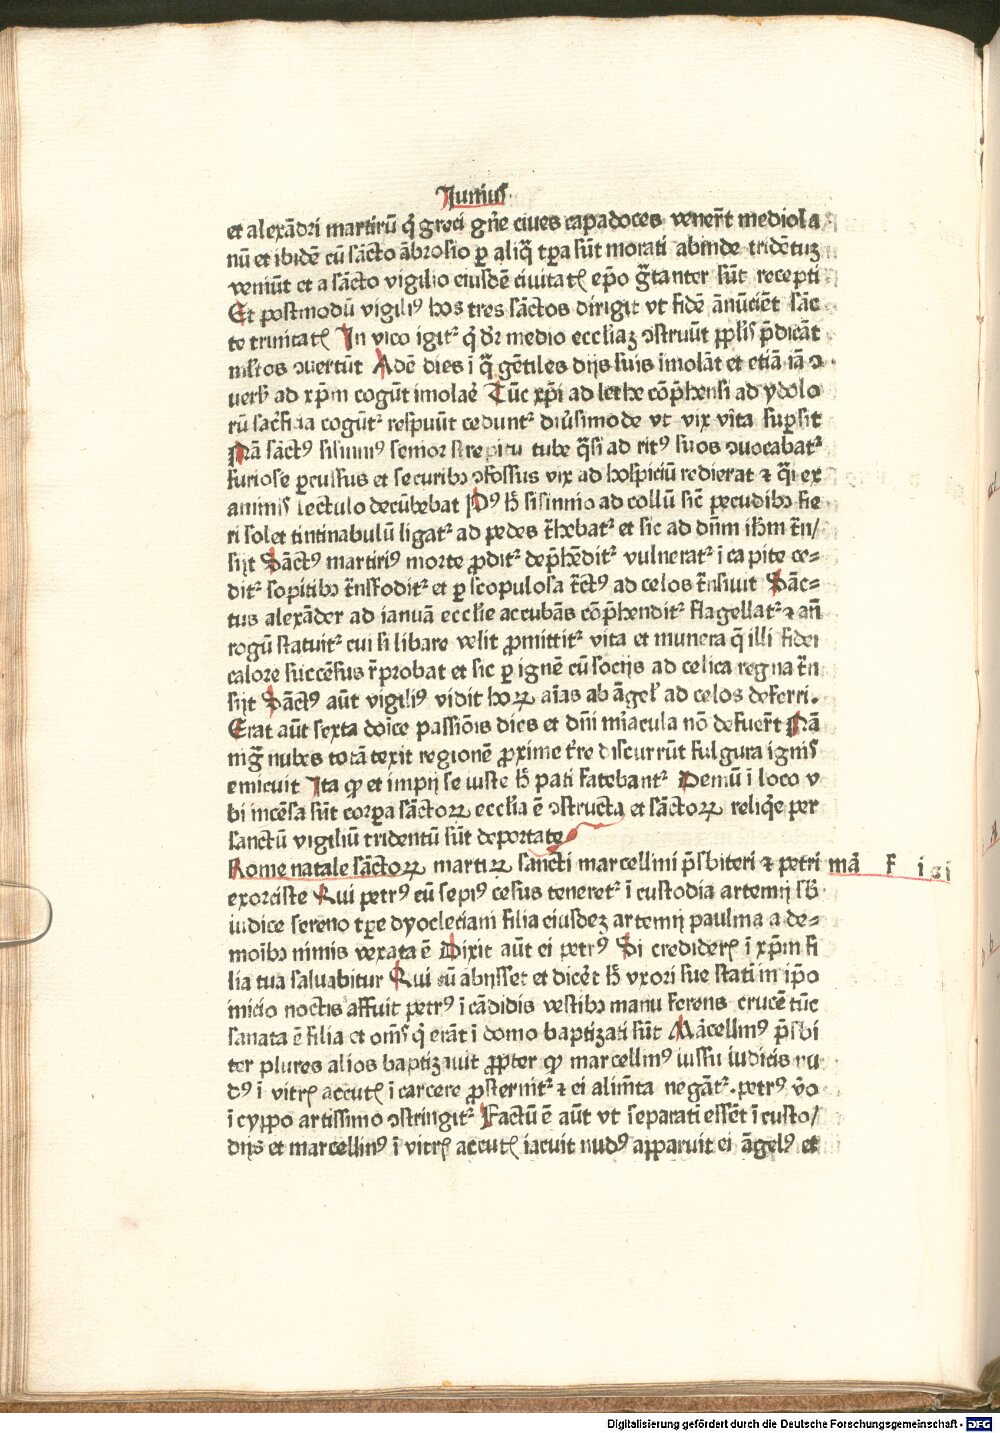 Junius
et alexādri martirū q̄ greci gn̄e ciues capadoces venerūt mediola
nū et ibidē cū sācto ābrosio ꝑ aliq̄ tꝑa sūt morati abinde tridētuꝫ
veniūt et a sācto vigilio eiusdē ciuitatꝭ ep̄o gͣtanter sūt recepti
Et postmodū vigiliꝰ hos tres sāctos dirigit vt fidē ānūciēt sāc
te trinitatꝭ In vico igitᷣ q̄ dr̄ medio eccliaꝫ ↄstruūt pp̄lis p̄dicāt
ml̄tos ↄuertūt Adē dies ī qͣ gētiles dijs suis imolāt et etiā iā ↄ
uersꝭ ad xp̄m cogūt imolare Tūc xp̄i ad lethe cōp̄hensi ad ydolo
rū sac̄ficia cogūtᷣ respuūt ceduntᷣ diūsimode vt vix vita suꝑsit
Nā sāctꝰ sisinniꝰ senior strepitu tube qͣsi ad ritꝰ suos ↄuocabatᷣ
furiose ꝑcussus et securibꝫ ↄfossus vix ad hospiciū redierat ⁊ qͣi ex
animis lectulo decūbebat Pꝰ hͦ sisinnio ad collū sic̄ pecudibꝫ fie
ri solet tintinabulū ligatᷣ ad pedes tͣhebatᷣ et sic ad dn̄m ih̄m tͣn/
sijt Sāctꝰ martiriꝰ morte ꝓditᷣ dep̄hēditᷣ vulneratᷣ ī capite ce=
ditᷣ sopitibꝫ tͣnsfoditᷣ et ꝑ scopulosa tͣctꝰ ad celos tͣnsiuit Sāc=
tus alexāder ad ianuā ecclie accubās cōp̄henditᷣ flagellatᷣ ⁊ añ
rogū statuitᷣ cui si libare velit ꝓmittitᷣ vita et munera q̄ illi fidei
calore succēsus r̄probat et sic ꝑ ignē cū socijs ad celica regna tͣn
sijt Sāctꝰ aūt vigiliꝰ vidit hoꝝ aīas ab āgel̄ ad celos deferri.
Erat aūt sexta dōice passiōis dies et dn̄i mīacula nō defuerūt Nā
nigͣ nubes totā texit regionē proxime tr̄e discurrūt fulgura ignis
emicuit Ita ꝙ et impij se iuste hͦ pati fatebantᷣ Demū ī loco v
bi incēsa sūt corꝑa sāctoꝝ ecclia ē ↄstructa et sāctoꝝ reliqͥe per
sanctū vigiliū tridentū sūt deportate
Rome natale sāctoꝝ martiꝝ sancti marcellini p̄sbiteri ⁊ petri mā F i gi
exorciste Qui petrꝰ cū sepiꝰ cesus teneretᷣ ī custodia artemij sb̄
iudice sereno tꝑe dyocleciani filia eiusdeꝫ artemij paulina a de=
moībꝫ nimis vexata ē Dixit aūt ei petrꝰ Si credideꝭ ī xp̄m fi
lia tua saluabitur Qui cū abijsset et dicēt hͦ vxori sue statī in ip̄o
inicio noctis affuit petrꝰ ī cādidis vestibꝫ manu ferens crucē tūc
sanata ē filia et om̄s q̄ erāt ī domo baptizati sūt Marcellinꝰ p̄sbi
ter plures alios baptizauit ꝓpter ꝙ marcellinꝰ iussu iudicis nu
dꝰ ī vitrꝭ accutꝭ ī carcere ꝓsternitᷣ ⁊ ei alim̄ta negātᷣ. petrꝰ v̄o
ī cyppo artissimo ↄstringitᷣ Factū ē aūt vt separati essēt ī custo/
dijs et marcellinꝰ ī vitrꝭ accutꝭ iacuit nudꝰ apparuit ei āgelꝰ et
Digitalisierung gefördert durch die Deutsche Forschungsgemeinschaft - DFG